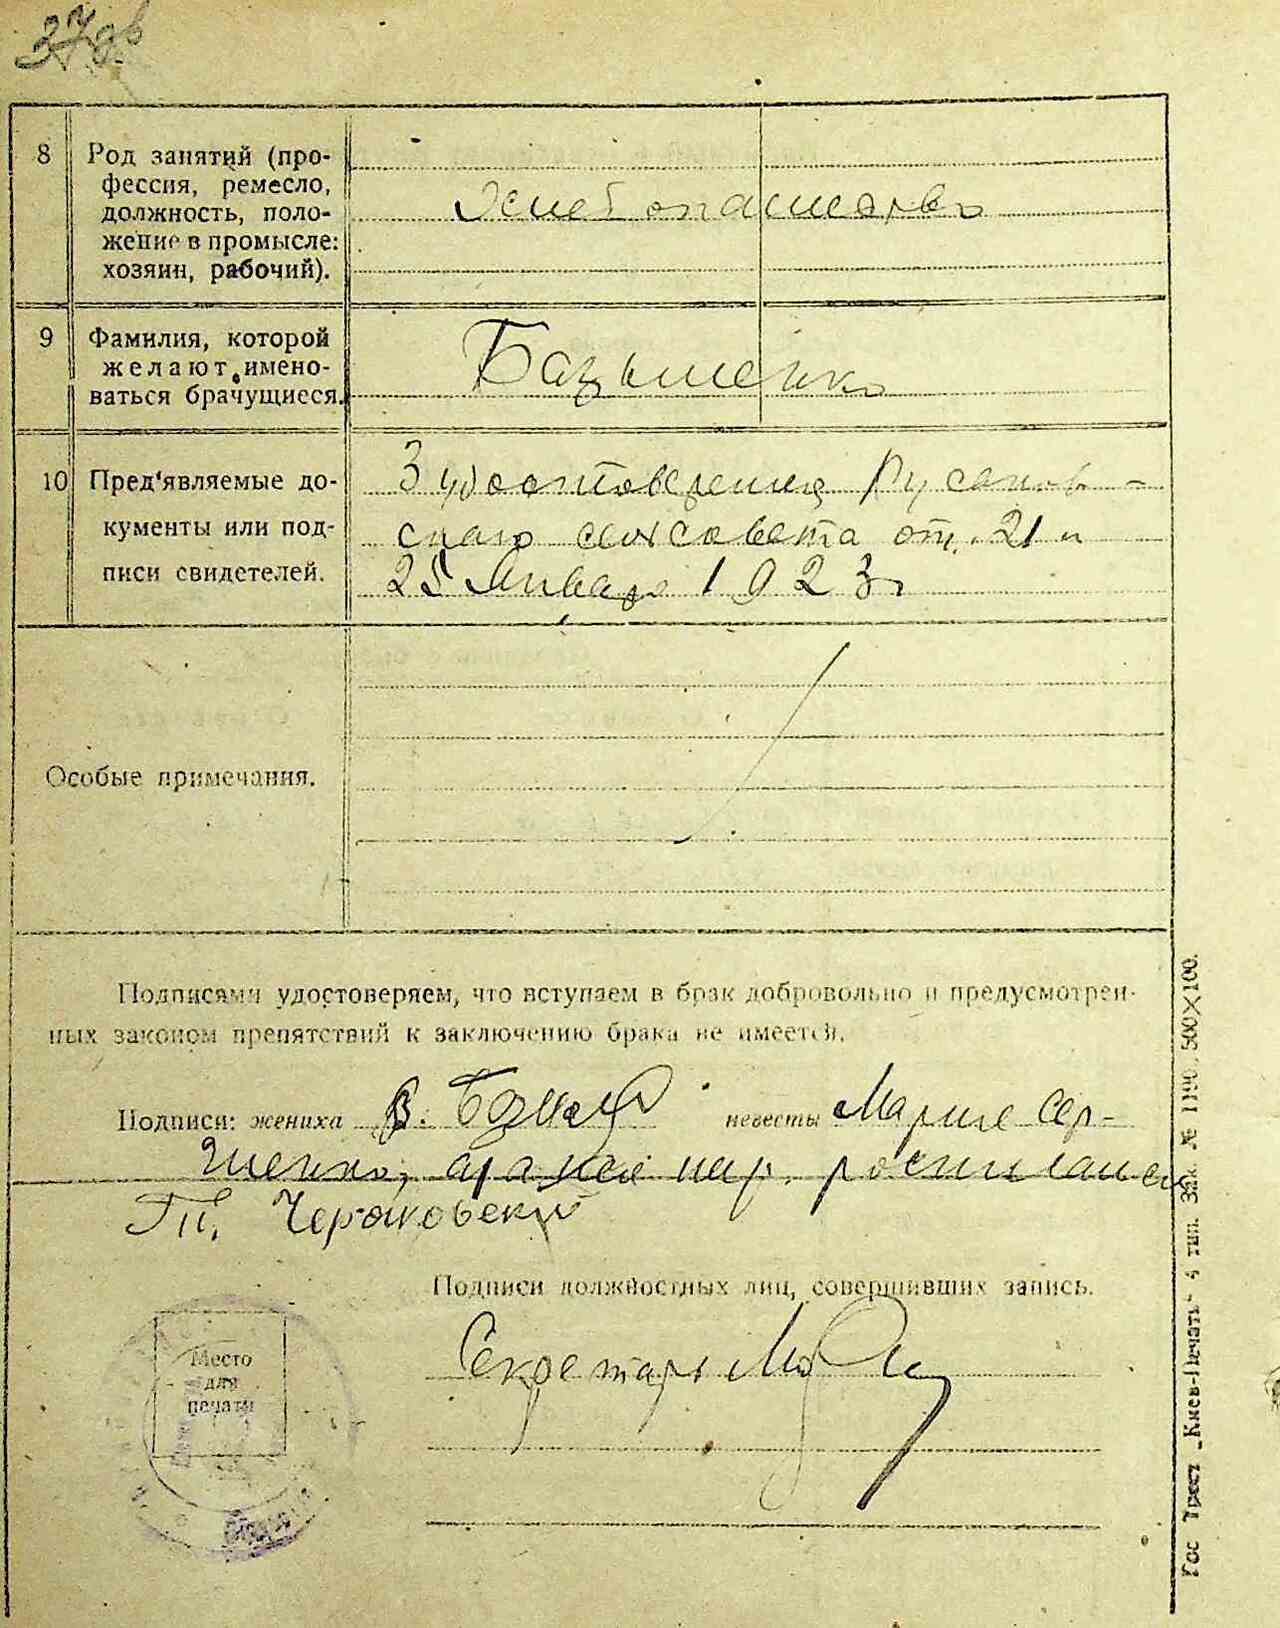 37
8 Род занятий (про-
фессия, ремесло,
должность, поло-
жение в промысле:
хозяин, рабочий).
Хлебопашество
9 Фамилия, которой
желают имено-
ваться брачущиеся.
Базыленко
10 Пред'являемые до-
кументы или под-
писи свидетелей.
3 удостоверения Русанов-
скаго сельсовета от 21 и
25 Января 1923 г
Особые примечания.
Подписями удостоверяем, что вступаем в брак добровольно и предусмотрен-
ных законом препятствий к заключению брака не имеется.
Подписи: жениха В. невесты Марие Сер-
Подписи должностных лиц, совершивших запись.
Секретарь
Место
для
печати
Гос Трест „Киев-Печать“ 4 тип. Зак. № 1190. 500×100.